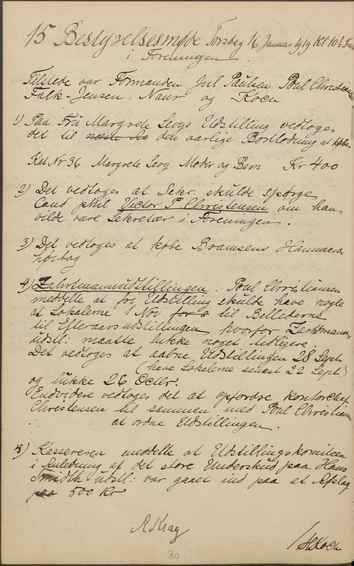 15 Bestyrelsesmøde Torsdag 16 Januar 1919 Kl 10½
i Foreningen
Tilstede var Formanden Jul Paulsen. Poul Christiansen
Falk-Jensen. Naur og Koch
1) Paa Fru Margrete Levys Udstilling vedtoges
det til den aarlige Bortlodning at købe
Kat Nr 36 Margrete Levy Moder og Barn Kr 400
2) Det vedtoges at Sekr. skulde spørge
Cand phil Victor P Christensen om han
vilde være Sekretær i Foreningen.
3) Det vedtoges at købe Bramsens Hammers-
høibog
4) Zahrtmannudstillingen. Poul Christiansen
meddelte at for Udstilling skulde have nogle
af Lokalerne i Nov for til Billederne
til Efteraarsudstillingen, hvorfor Zahrtmann
udstill: maatte lukke noget tidligere
Det vedtoges at aabne Udstillingen 28 Sept
(have Lokalerne senest 22 Sept)
og lukke 26 Octbr.
Endvidere vedtoges det at opfordre
Christensen til sammen med Poul Christiansen
at ordne Udstillingen.
5) Kassereren meddelte at Udstillingskomiteen
i Anledning af det store Underskud paa Hans
Smidths Udstill: var gaaet ind paa et Afslag
paa 500 Kr
30